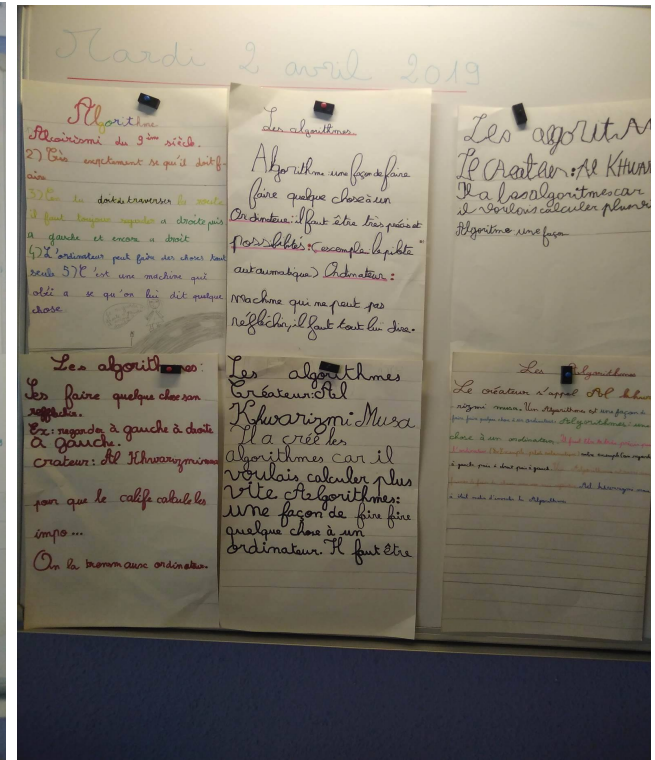 Mardi 2 avril 2019
Algorithme
Alcairismi du 9ième siècle.
2) exactement se qu'il doit f-
aire
3) tu doit traverser la route
il faut toujours regarder a droite puis
a gauche et encore a droit
4) L'ordinateur peut faire des choses tout
seule 5) C'est une machine qui
obéi a se qu'on lui dit quelque
chose
Les algorithmes
Algorithme une façon de faire
faire quelque chose à un
Ordinateur: il faut être très précis et
possibles: (escomple la pilote
autaumatique) Ordinateur:
machine qui ne peut pas
réfléchir, il faut tout lui dire.
Les agorit
Le Creather: Al KHWAR
Il a les algoritmes car
il voulois calculer plus
Algoritme une façon
Les algorithmes:
faire quelque chose son
refflechir.
Ex: regarder à gauche à droite
à gauche.
crateur: Al Khwarizmi musa
pour que le calife calcule les
impo...
On la bromm aux ordinateur.
Les algorithmes
Créateur: Al
Khwarizmi Musa
Il a crée les
algorithmes car il
voulais calculer plus
vite Aelgorithmes:
une façon de faire faire
quelque chose à un
ordinateur. Il faut être
Les Algorithmes
Le créateur s'appel Al khwa
rizmi musa. Un Algorithme est une façon de
faire faire quelque chose à un ordinateur. Algorithmes: une
chose à son ordinateur.
à gauche puis à droit puis à gauche.